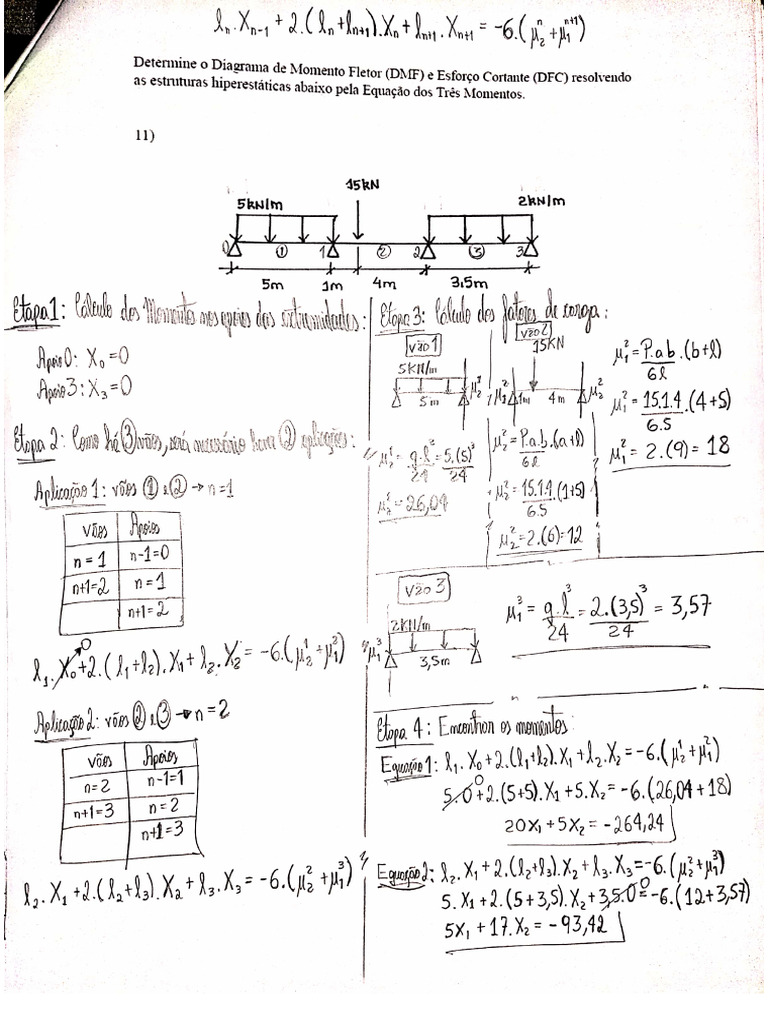 lₙ.Xₙ₋₁ + 2.(lₙ+lₙ₊₁).Xₙ + lₙ₊₁.Xₙ₊₁ = -6.(μ₂ⁿ+μ₁ⁿ⁺¹)
Determine o Diagrama de Momento Fletor (DMF) e Esforço Cortante (DFC) resolvendo
as estruturas hiperestáticas abaixo pela Equação dos Três Momentos.
11)
15kN
5kN/m
2kN/m
0 ① 1 ② 2 ③ 3
5m 1m 4m 3.5m
Etapa 1: Cálculo dos Momentos nos apoios das extremidades:
Apoio 0: X₀ = 0
Apoio 3: X₃ = 0
Etapa 2: Como há ③ vãos, será necessário haver ② aplicações:
Aplicação 1: vãos ① e ② → n=1
vãos Apoios
n = 1 n-1=0
n+1=2 n = 1
n+1 = 2
l₁.X₀+2.(l₁+l₂).X₁+l₂.X₂ = -6.(μ₂¹+μ₁²)
0
Aplicação 2: vãos ② e ③ → n = 2
vãos Apoios
n = 2 n-1=1
n+1=3 n = 2
n+1=3
l₂.X₁+2.(l₂+l₃).X₂+l₃.X₃ = -6.(μ₂²+μ₁³)
Etapa 3: Cálculo dos fatores de carga:
vão 1
5KN/m
5m
μ₂¹
μ₂¹ = q.l³/24 = 5.(5)³/24
μ₂¹ = 26,04
vão 2
15KN
μ₁² 1m 4m μ₂²
μ₂² = P.a.b.(a+l)/6l
μ₂² = 15.1.4.(1+5)/6.5
μ₂² = 2.(6) = 12
μ₁² = P.a.b.(b+l)/6l
μ₁² = 15.1.4.(4+5)/6.5
μ₁² = 2.(9) = 18
vão 3
2KN/m
μ₁³
3,5m
μ₁³ = q.l³/24 = 2.(3,5)³/24 = 3,57
Etapa 4: Encontrar os momentos:
Equação 1: l₁.X₀+2.(l₁+l₂).X₁+l₂.X₂ = -6.(μ₂¹+μ₁²)
5.0+2.(5+5).X₁+5.X₂ = -6.(26,04+18)
0
20X₁+5X₂ = -264,24
Equação 2: l₂.X₁+2.(l₂+l₃).X₂+l₃.X₃ = -6.(μ₂²+μ₁³)
5.X₁+2.(5+3,5).X₂+3,5.0 = -6.(12+3,57)
0
5X₁+17.X₂ = -93,42